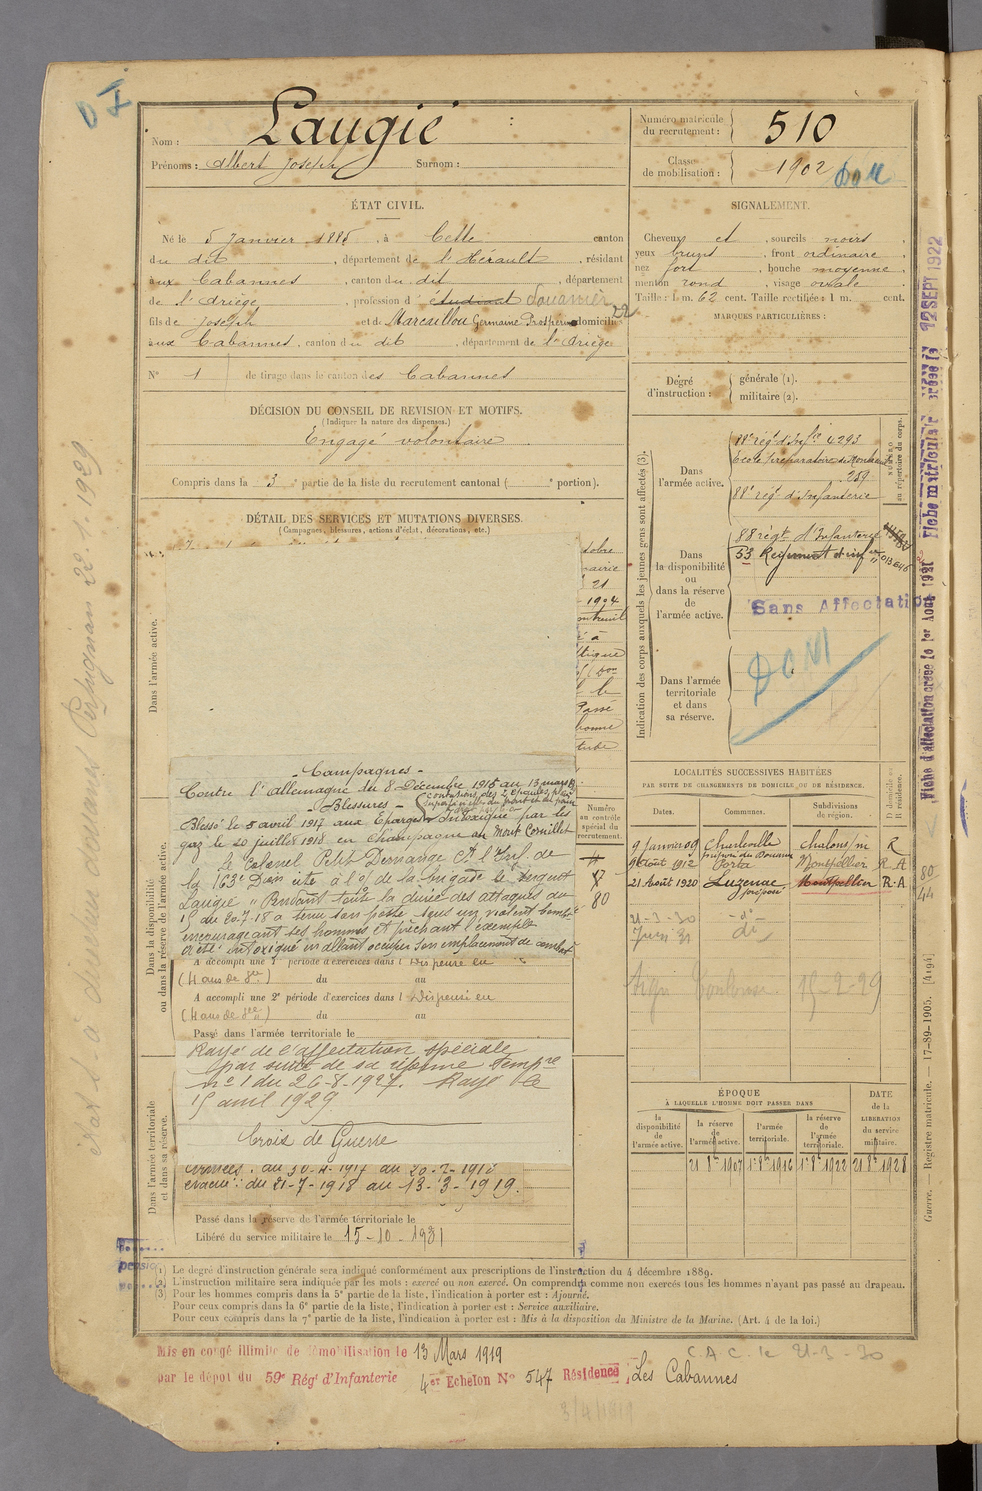 Nom : Laugié
Prénoms : Albert Joseph Surnom :
Numéro matricule du recrutement : 510
Classe de mobilisation : 1902
ÉTAT CIVIL.
Né le 5 Janvier 1885, à Cette canton
du dit, département de l'Hérault, résidant
aux Cabannes, canton du dit, département
de l'Ariège, profession d' étudiant Douanier
fils de Joseph et de Marcaillou Germaine Prospérine domiciliés
aux Cabannes, canton du dit, département de l'Ariège
N° 1 de tirage dans le canton des Cabannes
DÉCISION DU CONSEIL DE REVISION ET MOTIFS.
(Indiquer la nature des dispenses.)
Engagé volontaire
Compris dans la 3e partie de la liste du recrutement cantonal ( e portion).
DÉTAIL DES SERVICES ET MUTATIONS DIVERSES.
(Campagnes, blessures, actions d'éclat, décorations, etc.)
SIGNALEMENT.
Cheveux et, sourcils noirs,
yeux bruns, front ordinaire,
nez fort, bouche moyenne,
menton rond, visage ovale.
Taille : 1 m. 62 cent. Taille rectifiée : 1 m. cent.
MARQUES PARTICULIÈRES :
Degré d'instruction : générale (1).
militaire (2).
Indication des corps auxquels les jeunes gens sont affectés (3).
NUMÉRO au répertoire du corps.
Dans l'armée active.
88e rég. d'Infie 4293
École préparatoire de Montreuil
259
88e régt d'Infanterie
Dans la disponibilité ou dans la réserve de l'armée active.
88 régt d'Infanterie
53 Régiment d'inf
Sans Affectation
Dans l'armée territoriale et dans sa réserve.
DOM
Dans l'armée active.
Dans la disponibilité ou dans la réserve de l'armée active.
Dans l'armée territoriale et dans sa réserve.
- Campagnes -
Contre l'allemagne du 8 Décembre 1915 au 13 mars 19
- Blessures -
Blessé le 5 avril 1917 aux Eparges Intoxiqué par les
gaz le 20 juillet 1918 en Champagne au Mont Cornillet
Le Colonel Petit Demange Ct l'Inf. de
la 163e Don cite à l'o/ de la brigade le sergent
Laugié " Pendant toute la durée des attaques du
15 au 20-7-18 a tenu son poste sous un violent bombt
encourageant ses hommes et prêchant l'exemple
a été intoxiqué en allant occuper son emplacement de combat
A accompli une 1re période d'exercices dans l Dispensé en
(4 ans de sce) du au
A accompli une 2e période d'exercices dans l Dispensé en
(4 ans de sce) du au
Passé dans l'armée territoriale le
Rayé de l'affectation spéciale
par suite de sa réforme Tempre
n° 1 du 26-8-1927. Rayé le
15 avril 1929
Croix de Guerre
armées : du 30-4-1917 au 20-7-1918
évacué : du 21-7-1918 au 13-3-1919.
Passé dans la réserve de l'armée territoriale le
Libéré du service militaire le 15-10-1931
Numéro au contrôle spécial du recrutement.
80
LOCALITÉS SUCCESSIVES HABITÉES
PAR SUITE DE CHANGEMENTS DE DOMICILE OU DE RÉSIDENCE.
Dates. Communes. Subdivisions de région. D domicile ou R résidence.
9 Janvier 09 Charleville Chalons/m R
9 Août 1912 Porta Montpellier R.A
21 Août 1920 Luzenac Montpellier R.A
préposé
21-3-30 - di -
Juin 31 di
Toulouse. 15-2-29
80
44
ÉPOQUE
À LAQUELLE L'HOMME DOIT PASSER DANS
la disponibilité de l'armée active.
la réserve de l'armée active.
l'armée territoriale.
la réserve de l'armée territoriale.
DATE de la LIBÉRATION du service militaire.
21 8bre 1907 1er 8bre 1916 1er 8bre 1922 21 8bre 1928
(1) Le degré d'instruction générale sera indiqué conformément aux prescriptions de l'instruction du 4 décembre 1889.
(2) L'instruction militaire sera indiquée par les mots : exercé ou non exercé. On comprendra comme non exercés tous les hommes n'ayant pas passé au drapeau.
(3) Pour les hommes compris dans la 5e partie de la liste, l'indication à porter est : Ajourné.
Pour ceux compris dans la 6e partie de la liste, l'indication à porter est : Service auxiliaire.
Pour ceux compris dans la 7e partie de la liste, l'indication à porter est : Mis à la disposition du Ministre de la Marine. (Art. 4 de la loi.)
Mis en congé illimité de démobilisation le 13 Mars 1919
par le dépôt du 59e Régt d'Infanterie 4er Echelon N° 547 Résidence Les Cabannes
C.A.C. le 21-3-30
Guerre. — Registre matricule. — 17-89-1905. [4194]
Fiche d'affectation créée le 1er Août 1921
Fiche matriculaire créée le 12 SEPT 1922